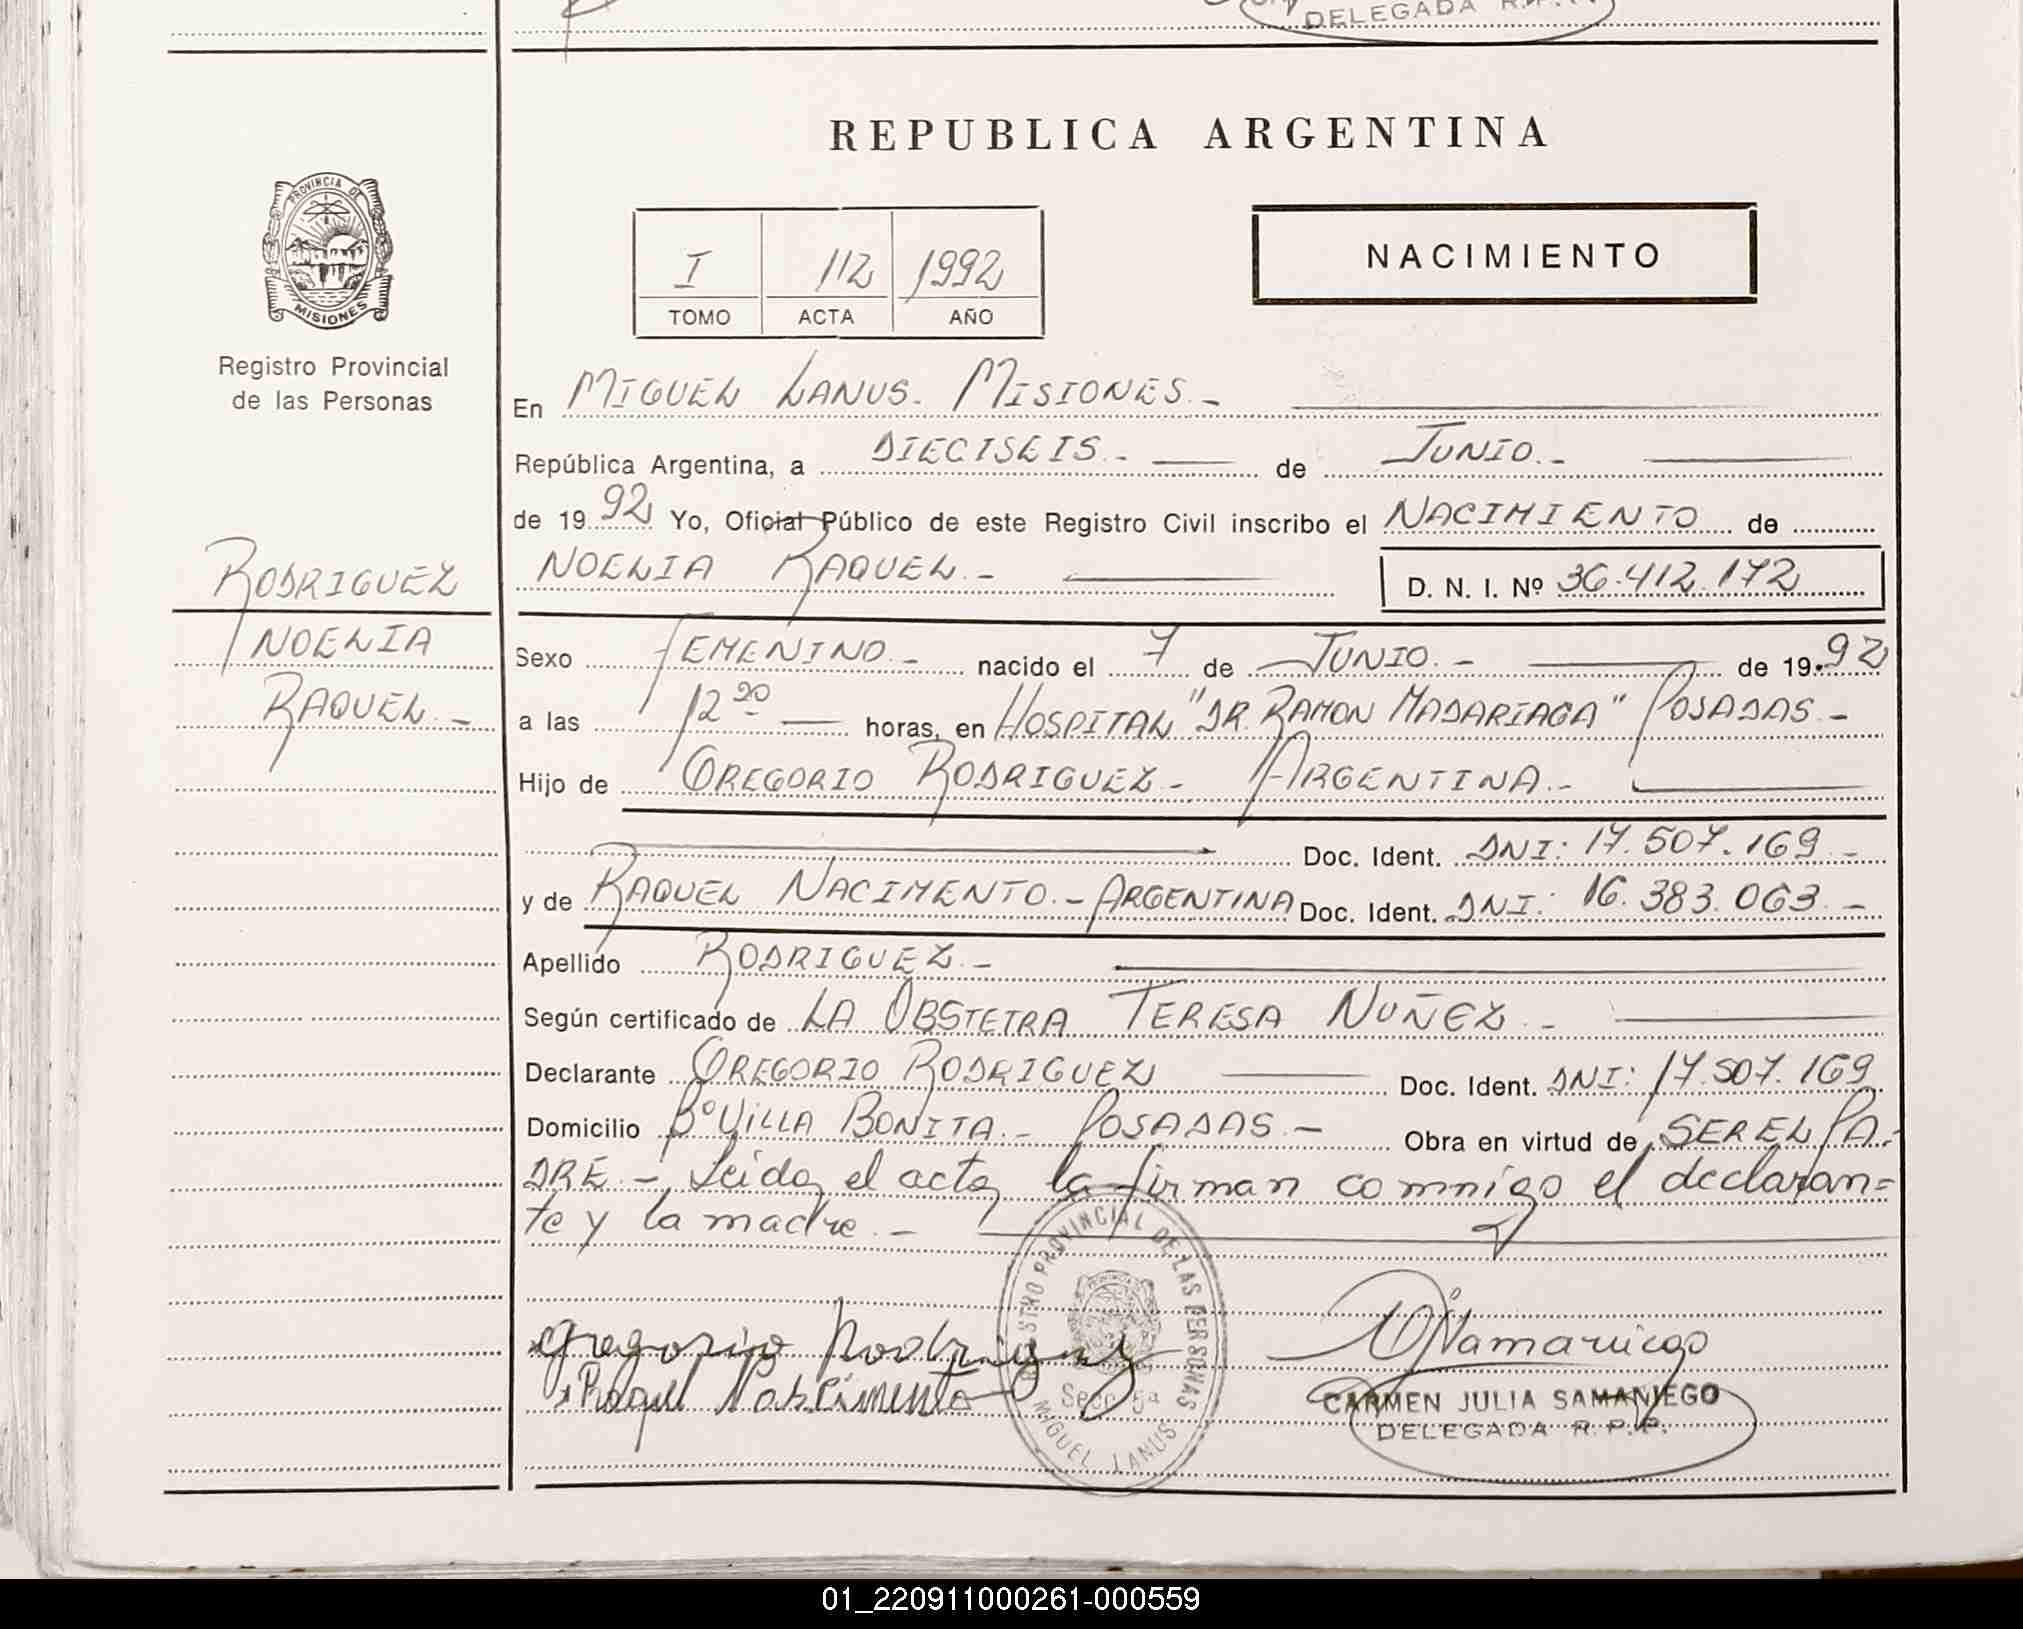 DELEGADA R.P.P.
REPUBLICA ARGENTINA
PROVINCIA DE
MISIONES
Registro Provincial
de las Personas
I 112 1992
TOMO ACTA AÑO
NACIMIENTO
En MIGUEL LANUS. MISIONES.-
República Argentina, a DIECISEIS.- de JUNIO.-
de 1992 Yo, Oficial Público de este Registro Civil inscribo el NACIMIENTO de
NOELIA RAQUEL.- D. N. I. Nº 36.412.172
RODRIGUEZ
NOELIA
RAQUEL.-
Sexo FEMENINO.- nacido el 7 de JUNIO.- de 1992
a las 12 20 horas, en HOSPITAL "DR. RAMON MADARIAGA" POSADAS.-
Hijo de GREGORIO RODRIGUEZ.- ARGENTINA.-
Doc. Ident. DNI: 17.507.169.-
y de RAQUEL NACIMENTO.- ARGENTINA Doc. Ident. DNI: 16.383.063.-
Apellido RODRIGUEZ.-
Según certificado de LA OBSTETRA TERESA NUÑEZ.-
Declarante GREGORIO RODRIGUEZ Doc. Ident. DNI: 17.507.169
Domicilio Bº VILLA BONITA.- POSADAS.- Obra en virtud de SER EL PA-
DRE.- Leida el acta, la firman comnigo el declaran=
te y la madre.-
Gregorio Rodriguez
Raquel Nascimento
REGISTRO PROVINCIAL DE LAS PERSONAS
Secc. 5ª
MIGUEL LANUS
CARMEN JULIA SAMANIEGO
DELEGADA R.P.P.
01_220911000261-000559